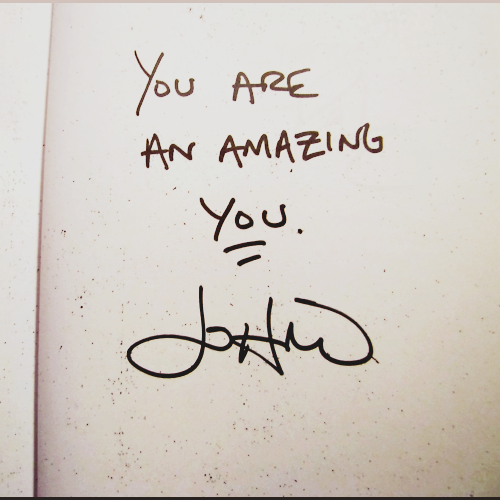 YOU ARE
AN AMAZING
YOU.
JOHN